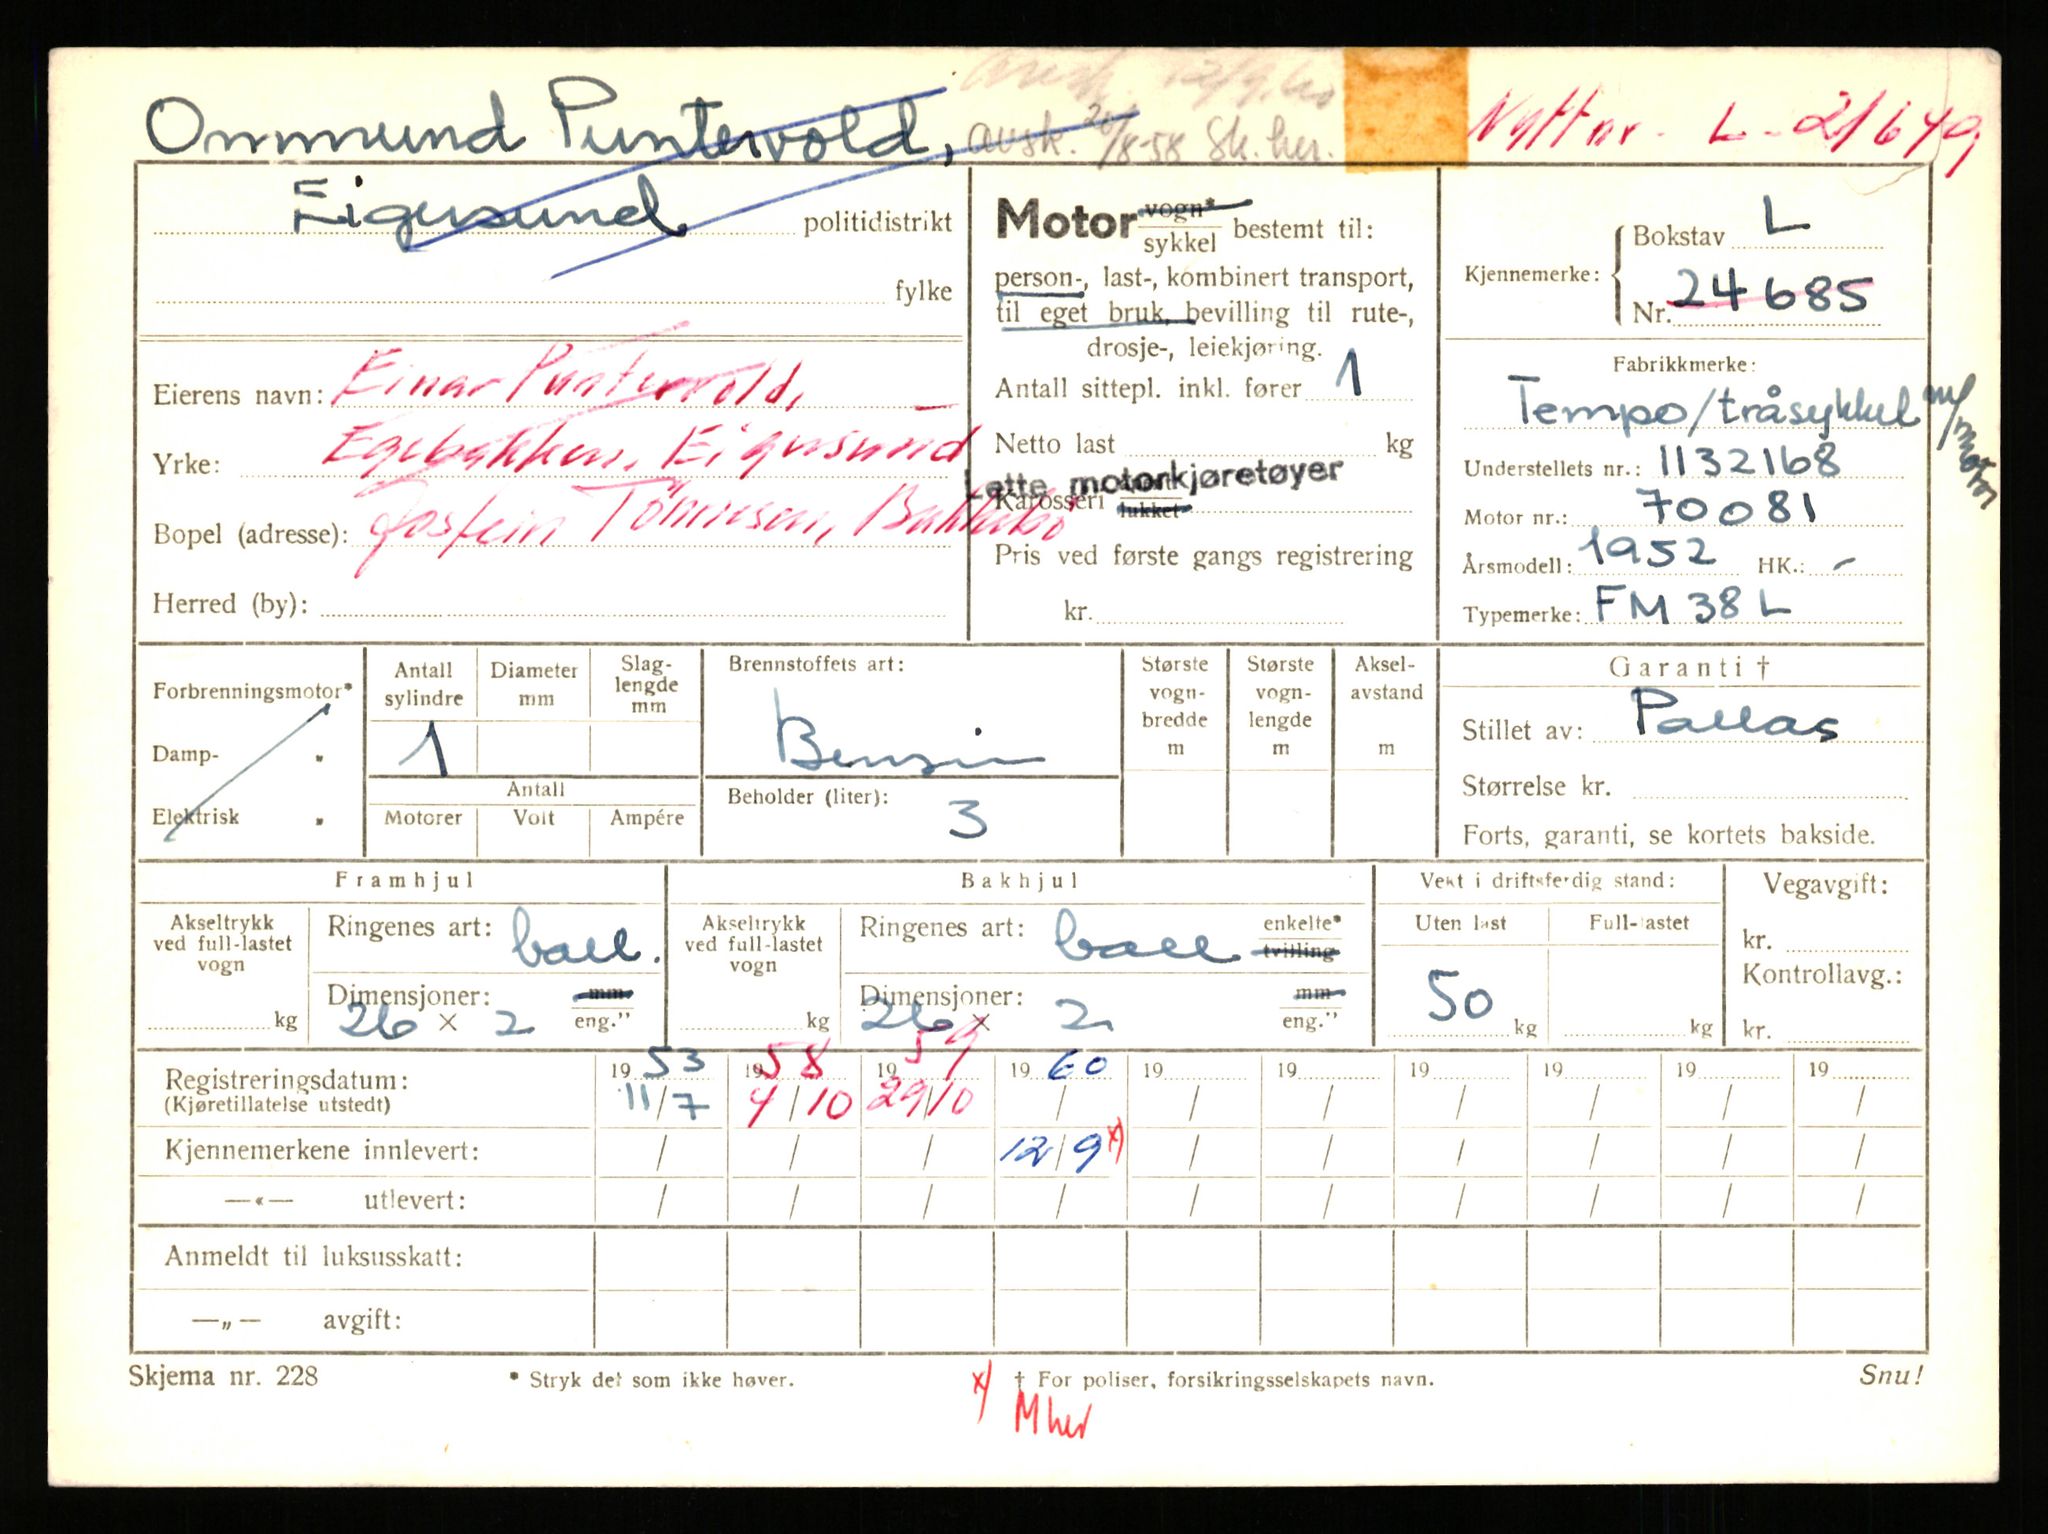 Ommund Puntervold, avsk. 20/8-58 Sk. her.
Nytt nr. L-21649
Eigersund politidistrikt
fylke
Eierens navn: Einar Puntervold,
Yrke: Egebakken, Eigersund
Bopel (adresse):
Herred (by):
Motor vogn*
sykkel bestemt til:
person-, last-, kombinert transport,
til eget bruk, bevilling til rute-,
drosje-, leiekjøring.
Antall sittepl. inkl. fører 1
Netto last kg
Lette motorkjøretøyer
Karosseri lukket
Pris ved første gangs registrering
kr.
Kjennemerke: Bokstav L
Nr. 24685
Fabrikkmerke:
Tempo/tråsykkel m/motor
Understellets nr.: 1132168
Motor nr.: 70081
Årsmodell: 1952 HK.: -
Typemerke: FM 38 L
Forbrenningsmotor*
Damp- "
Elektrisk "
Antall sylindre
1
Diameter mm
Slag-
lengde
mm
Antall
Motorer Volt Ampére
Brennstoffets art:
Bensin
Beholder (liter):
3
Største
vogn-
bredde
m
Største
vogn-
lengde
m
Aksel-
avstand
m
Garanti †
Stillet av: Pallas
Størrelse kr.
Forts, garanti, se kortets bakside.
Framhjul
Akseltrykk
ved full-lastet
vogn
kg
Ringenes art: ball.
Dimensjoner: mm
26 × 2 eng."
Bakhjul
Akseltrykk
ved full-lastet
vogn
kg
Ringenes art: ball enkelte*
tvilling
Dimensjoner: mm
26 × 2 eng."
Vekt i driftsferdig stand:
Uten last Full-lastet
50 kg kg
Vegavgift:
kr.
Kontrollavg.:
kr.
Registreringsdatum: 1953 1958 1959 1960 19 19 19 19 19 19
(Kjøretillatelse utstedt) 11/7 4/10 29/10 / / / / / / /
Kjennemerkene innlevert: / / / 12/9 x) / / / / / /
—«— utlevert: / / / / / / / / / /
Anmeldt til luksusskatt:
—„— avgift:
Skjema nr. 228
* Stryk det som ikke høver.
† For poliser, forsikringsselskapets navn.
Snu!
x) M her